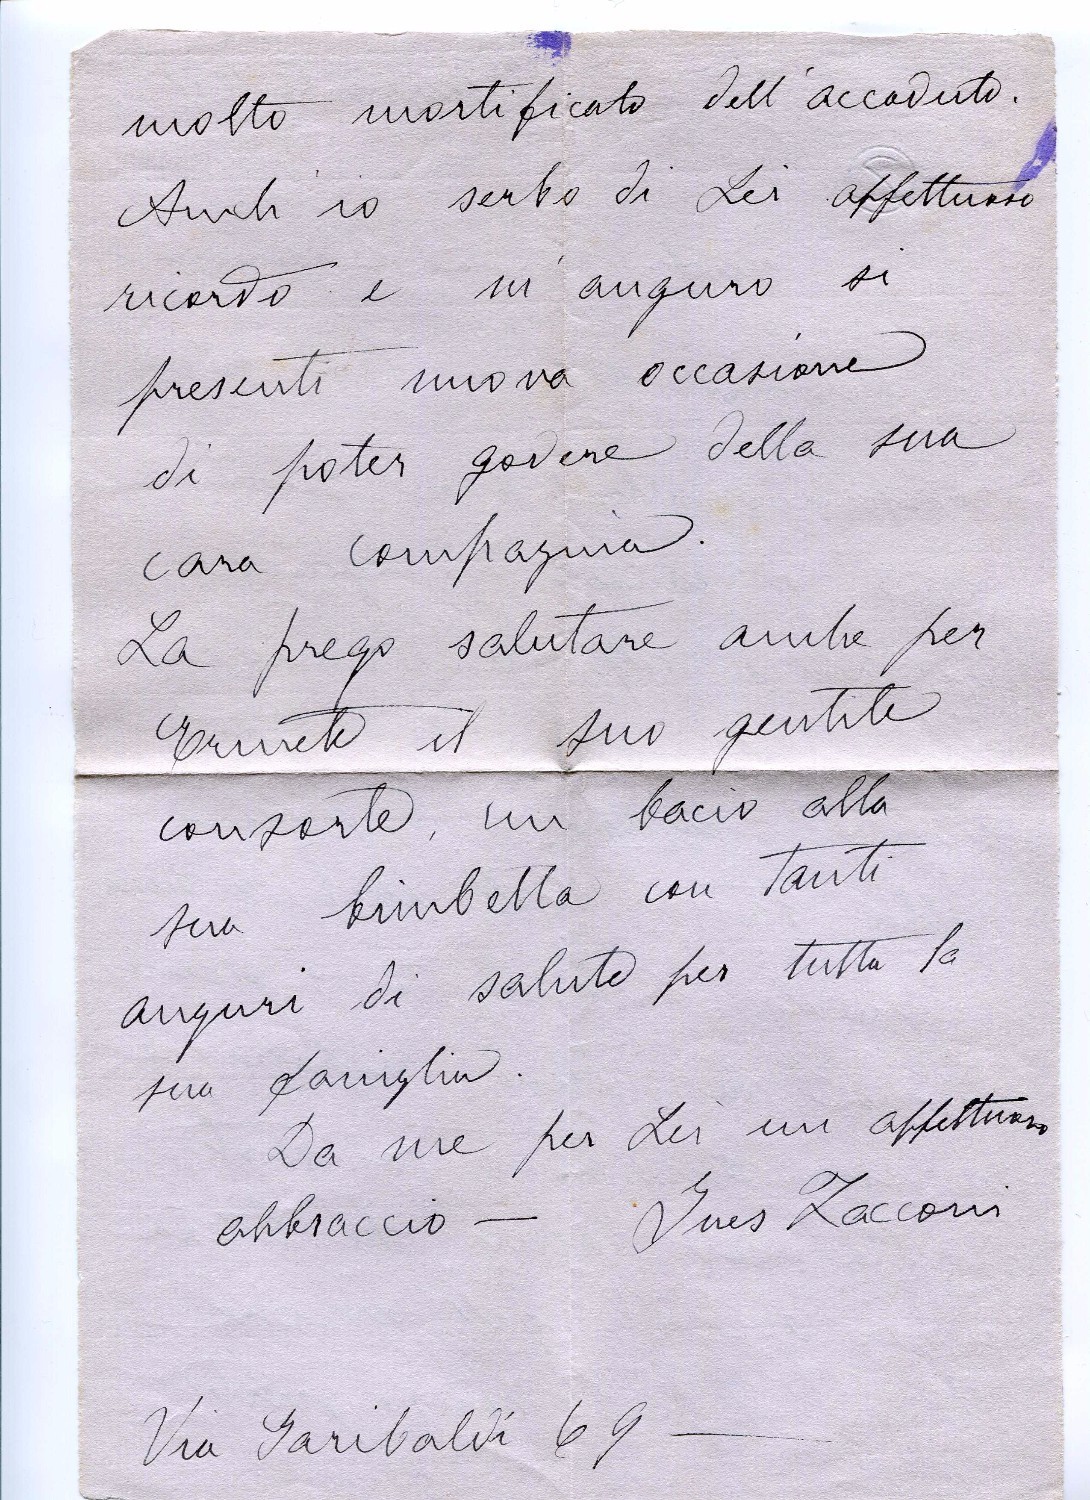 molto mortificato dell'accaduto.
Anch'io serbo di Lei affettuoso
ricordo e m'auguro si
presenti nuova occasione
di poter godere della sua
cara compagnia.
La prego salutare anche per
Ermete il suo gentile
consorte, un bacio alla
sua bimbetta con tanti
auguri di salute per tutta la
sua famiglia.
Da me per Lei un affettuoso
abbraccio — Ines Zacconi
Via Garibaldi 69 —